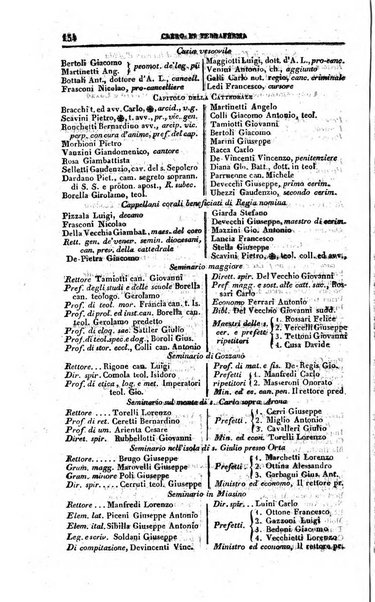 154 CLERO IN TERRAFERMA
Curia vescovile
Bertoli Giacomo } promot. de' legati pii
Martinetti Ang. }
Bottali Ant., dottore d'A. L., cancell.
Frasconi Nicolao, pro-cancelliere
Maggiotti Luigi, dott. d'A. L., pro-canc.
Venini Antonio, avv. fisc. gen.
Galli Carlo not. regio, canc. criminale
Ledi Francesco, cursore
CAPITOLO DELLA CATTEDRALE
Bracchi t. ed avv. Carlo, ✠, arcid.
Scavini Pietro, ✠, t. avv., pr., vic. gen.
Ronchetti Bernardino avv., arcip. vic.
perp. con cura d'anime, pref. del cap.
Morbioni Pietro
Vanzini Giandomenico, cantore
Rosa Giambattista
Selletti Gaudenzio, cav. del s. Sepolero
Dardano Piet., cam. segreto soprann.
di S. S. e proton. apost., R. subec.
Borella Girolamo, teol.
Martinetti Angelo
Colli Giacomo Antonio, teol.
Tamiotti Giovanni
Bertoli Giacomo
Marini Giuseppe
Racca Carlo
De-Vincenti Vincenzo, penitenziere
Diana Gio. Batt., dott. in teol.
Parruccone can. Michele
Devecchi Giuseppe, primo cerim.
Ubezzi Gaudenzio, secondo cerim.
Cappellani corali beneficiati di Regia nomina
Pizzala Luigi
Frasconi Nicolao
Della Vecchia Giambat., maes. del coro
Rett. gen. de' vener. semin. diocesani,
can. pres. della cattedrale
De-Pietra Giacomo
Giarda Stefano
Devecchi Giuseppe, maestro di cerim.
Mazzini Gio. Antonio
Lancia Francesco
Stella Giuseppe
Scavini Pietro, ✠, teol. coll. ed avv.
Seminario maggiore
Rettore Tamiotti can. Giovanni
Pref. degli studi e delle scuole Borella
can. teologo. Gerolamo
Prof. di teol. mor. Francia can. t. Is.
Prof. di or. pred. ed inst. can. Borella
teol. Gerolamo predetto
Prof. di elog. sac. Satller Giulio
Prof. di teol. spec. e dog., Boroli Gius.
Prof. di stor. eccl., Colli can. Antonio
Dirett. spir. Del Vecchio Giovanni
Prefett. e sost. alle catt. sac., Rossari
can.
Economo Ferrari Antonio
Bibl. Del Vecchio Giovanni sudd.
Maestri delle scuole, e ripetitori { 1. Rossari Felice
2. Vercelli Giuseppe
3. Tettoni Giovanni
4. Cusa Davide
Seminario di Gozzano
Rettore ... Rigone can. Luigi
Dir. spir. Comola teol. Isidoro
Prof. di etica, log. e met. Imperatori
teol. Gio.
Prof. di mat. e fis. De-Regis Gio.
Prefetti e ripetitori { 1. Manfredi Carlo
2. Masseroni Onorato
Min. ed ec. can. pen. Il rettore pred.
Seminario sul monte di s. Carlo sopra Arona
Rettore .... Torelli Lorenzo
Prof di ret. Ceretti Bernardino
Prof di um. Arienta Cesare
Diret. spir. Rubbellotti Giovanni
Prefetti . { 1. Cerri Giuseppe
2. Miglio Antonio
3. Cavalleri Giulio
Min. ed econ. Torelli Lorenzo
Seminario nell'isola di s. Giulio presso Orta
Rettore..... Brugo Giuseppe
Gram. magg. Marovelli Giuseppe
Gram. minore Poli Giuseppe
Dir. spir..... Cerruti teol. Giuseppe
Prefetti. { 1. Marchetti Lorenzo
2. Ottina Alessandro
3. Garbagni Gius.
Ministro ed economo, Il rettore pr.
Seminario in Miasino
Rettore ... Manfredi Lorenzo
Elem. lat. Picini Giuseppe Antonio
Elem. ital. Sibilla Giuseppe Antonio
Leg. e scriv. Soldani Giuseppe
Di compitazione, Devincenti Vinc.
Dir. spir.. Luini Carlo
Prefetti. { 1. Ottone Francesco
2. Gazzoni Luigi
3. Bedoni Giacomo
4. Vecchietti Lorenzo
Ministro ed economo, Il rettore pr.